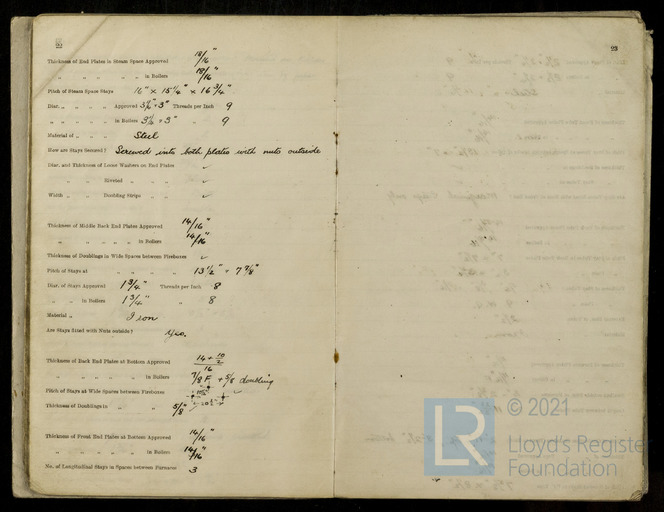 22
Thickness of End Plates in Steam Space Approved 18/16"
„ „ „ „ „ „ in Boilers 18/16"
Pitch of Steam Space Stays 16" × 15 1/4" × 16 3/4"
Diar. „ „ „ „ Approved Threads per Inch 9
„ „ „ „ in Boilers „ 9
Material of „ „ „ Steel
How are Stays Secured? Screwed into both plates with nuts outside
Diar. and Thickness of Loose Washers on End Plates
„ „ Riveted „ „
Width „ „ Doubling Strips „ „
Thickness of Middle Back End Plates Approved 14/16"
„ „ „ „ „ in Boilers 14/16"
Thickness of Doublings in Wide Spaces between Fireboxes
Pitch of Stays at „ „ „ „ 13 1/2" × 7 7/8"
Diar. of Stays Approved 1 3/4" Threads per Inch 8
„ „ in Boilers 1 3/4" „ 8
Material „ Iron
Are Stays fitted with Nuts outside? Yes.
Thickness of Back End Plates at Bottom Approved
„ „ „ „ „ in Boilers 7/8 F + 5/8 doubling
Pitch of Stays at Wide Spaces between Fireboxes
Thickness of Doublings in „ „ 5/8"
Thickness of Front End Plates at Bottom Approved 14/16"
„ „ „ „ „ in Boilers 14/16"
No. of Longitudinal Stays in Spaces between Furnaces 3
23
LR © 2021
Lloyd's Register
Foundation